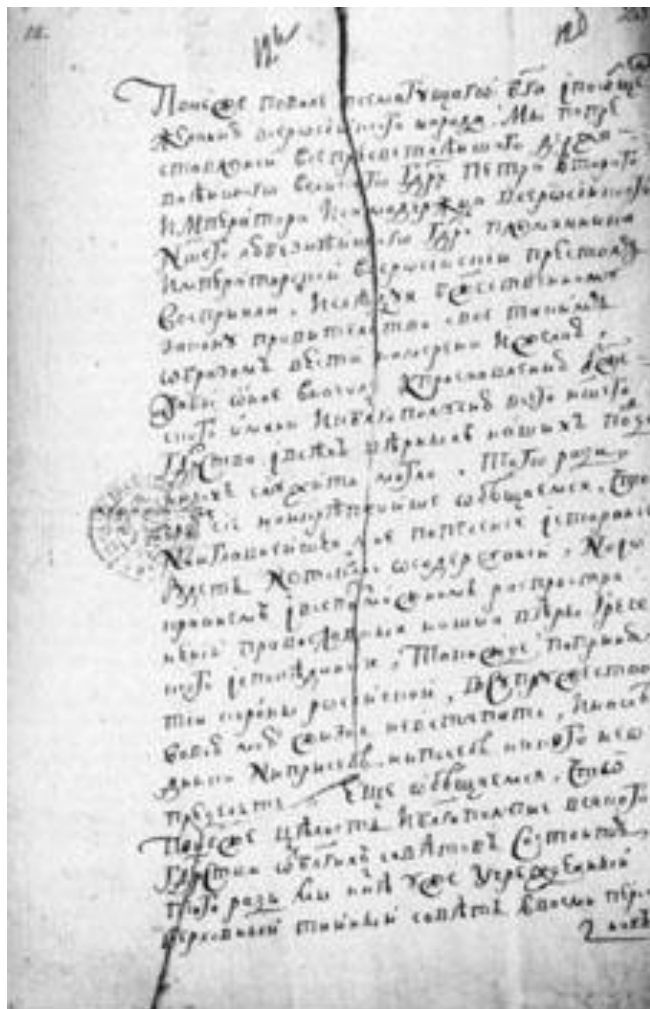 12.
Понеже по воле всемогущаго бга і по обще
желанию росиского народа. Мы по пре
ставлении всепресветлѣишаго држа
внѣишаго великого Гдря Петра Втораго
Императора И самодержца всеросиского
Нашего любезнѣишаго Гдря племянника
Императорской всеросискои престолъ
восприяли, И слѣдуя бжественному
закону правительство свое такимъ
образомъ вести намерена И желаю,
дабы оное вначале к прославлению бже
ского имени И къ благополучию всего ншего
Гдрства і всѣхъ вѣрных наших подда
служить могло, Того ради
чрез сие наикрѣпчаише обѣщаемся, что
Наиглавнѣишее мое попечение і старание
будетъ Не токмо о содержании, Но и о
краинемъ і всевозможномъ распростра
нении православные нашия вѣры грече
ского исповедания, Такожде по приня
тии короны росискои, в супружество
во всю мою жизнь не вступать, И наслѣ
дника Ни при себѣ, ни по себѣ никого не о
предѣлять Еще обѣщаемся, что
Понеже цѣлость И благополучие всякого
Гдрства от благихъ совѣтовъ состоитъ,
Того ради мы ннѣ уже учрежденный
верховный таиныи совѣтъ в восми перс